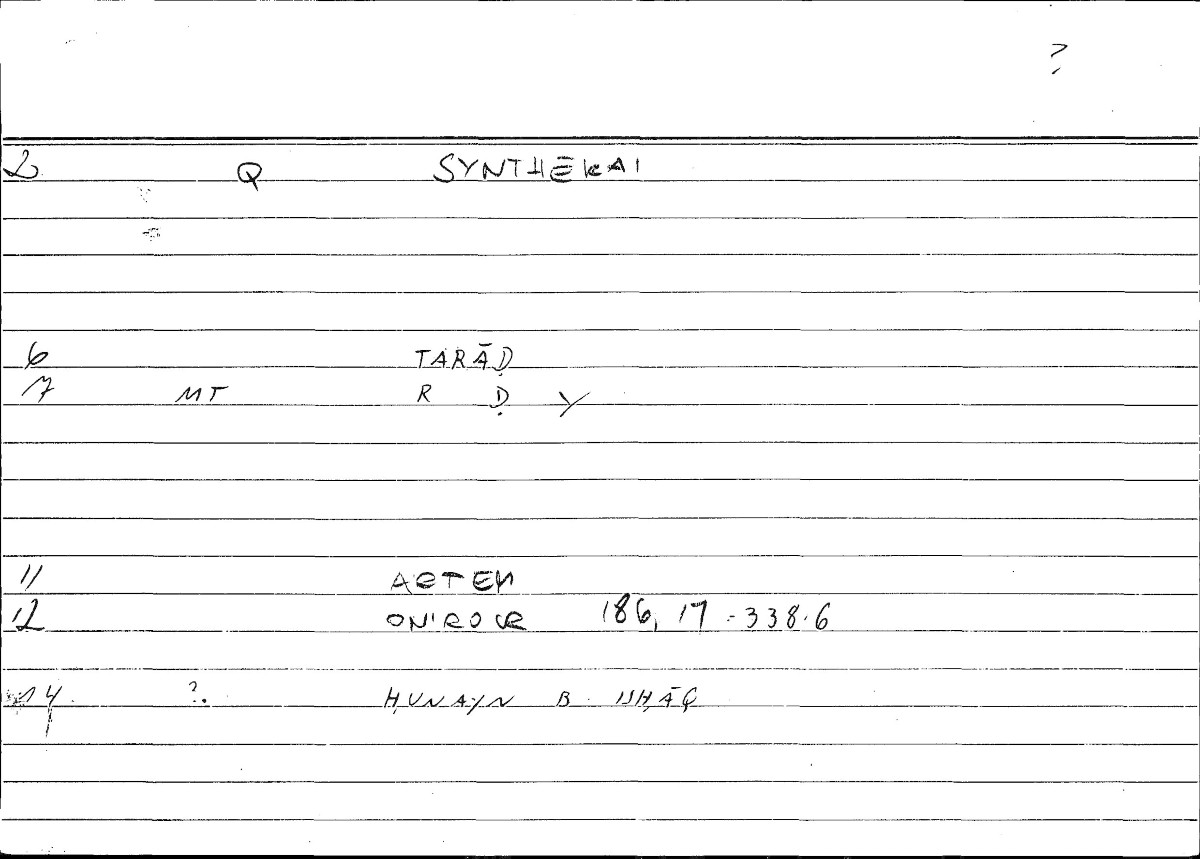 ?
2 Q SYNTHĒKAI
6 TARĀḌ
7 MT R Ḍ Y
11 ARTEM
12 ONIROCR 186,17-338.6
14 ?. ḤUNAYN B ISḤĀQ